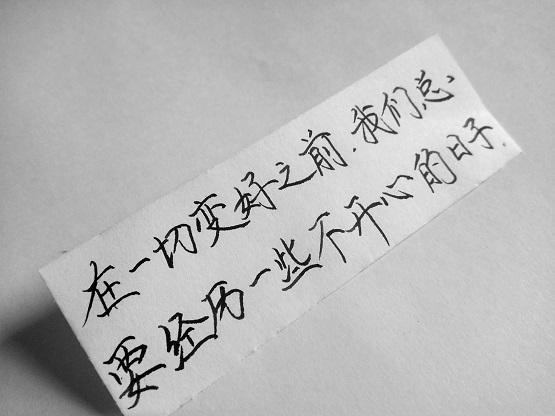 在一切变好之前,我们总
要经历一些不开心的日子.